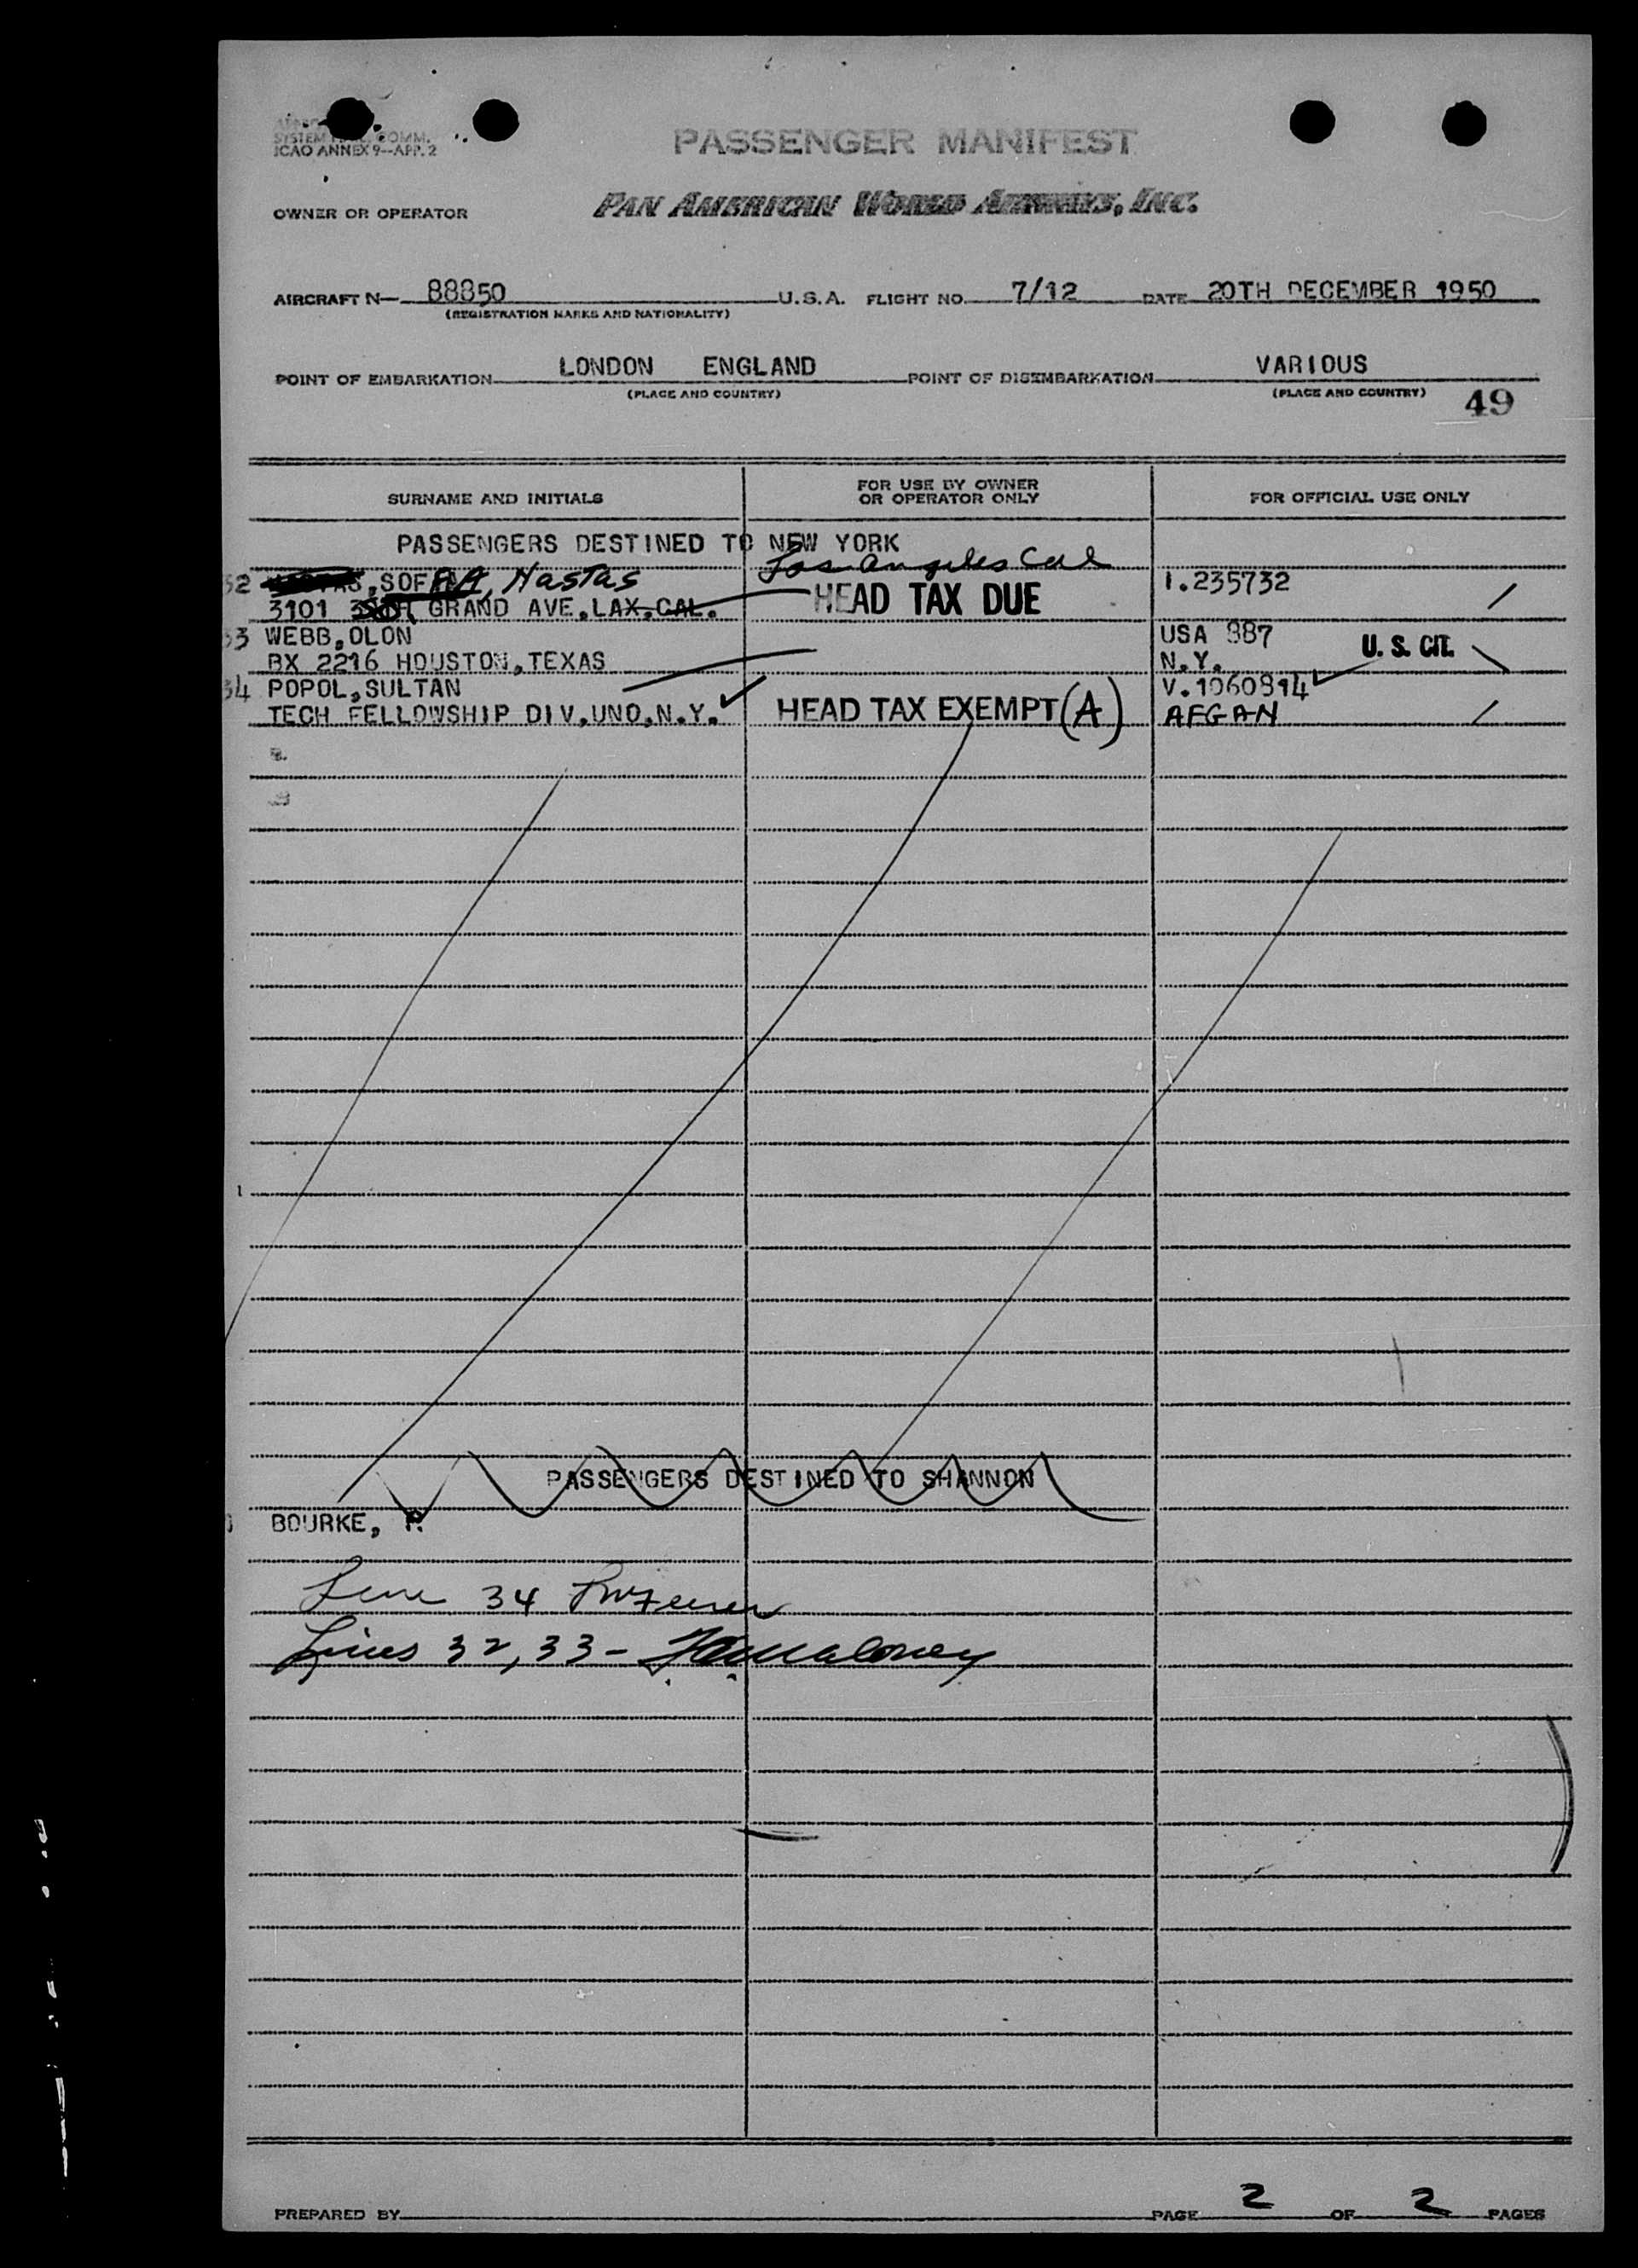 SYSTEM COMM.
ICAO ANNEX 9—APP. 2
PASSENGER MANIFEST
OWNER OR OPERATOR
PAN AMERICAN WORLD AIRWAYS, INC.
AIRCRAFT N— 88850 U.S.A. FLIGHT NO. 7/12 DATE 20TH DECEMBER 1950
(REGISTRATION MARKS AND NATIONALITY)
POINT OF EMBARKATION LONDON ENGLAND POINT OF DISEMBARKATION VARIOUS
(PLACE AND COUNTRY) (PLACE AND COUNTRY)
49
SURNAME AND INITIALS FOR USE BY OWNER OR OPERATOR ONLY FOR OFFICIAL USE ONLY
PASSENGERS DESTINED TO NEW YORK
Los Angeles Cal
32 Nastas 1.235732
3101 GRAND AVE.LAX,CAL. HEAD TAX DUE
33 WEBB,OLON USA 887 U. S. CIT.
BX 2216 HOUSTON,TEXAS N.Y.
34 POPOL,SULTAN V.1060814
TECH FELLOWSHIP DIV.UNO,N.Y. HEAD TAX EXEMPT (A) AFGAN
PASSENGERS DESTINED TO SHANNON
BOURKE, P.
Line 34
Lines 32, 33 - Maloney
PREPARED BY PAGE 2 OF 2 PAGES